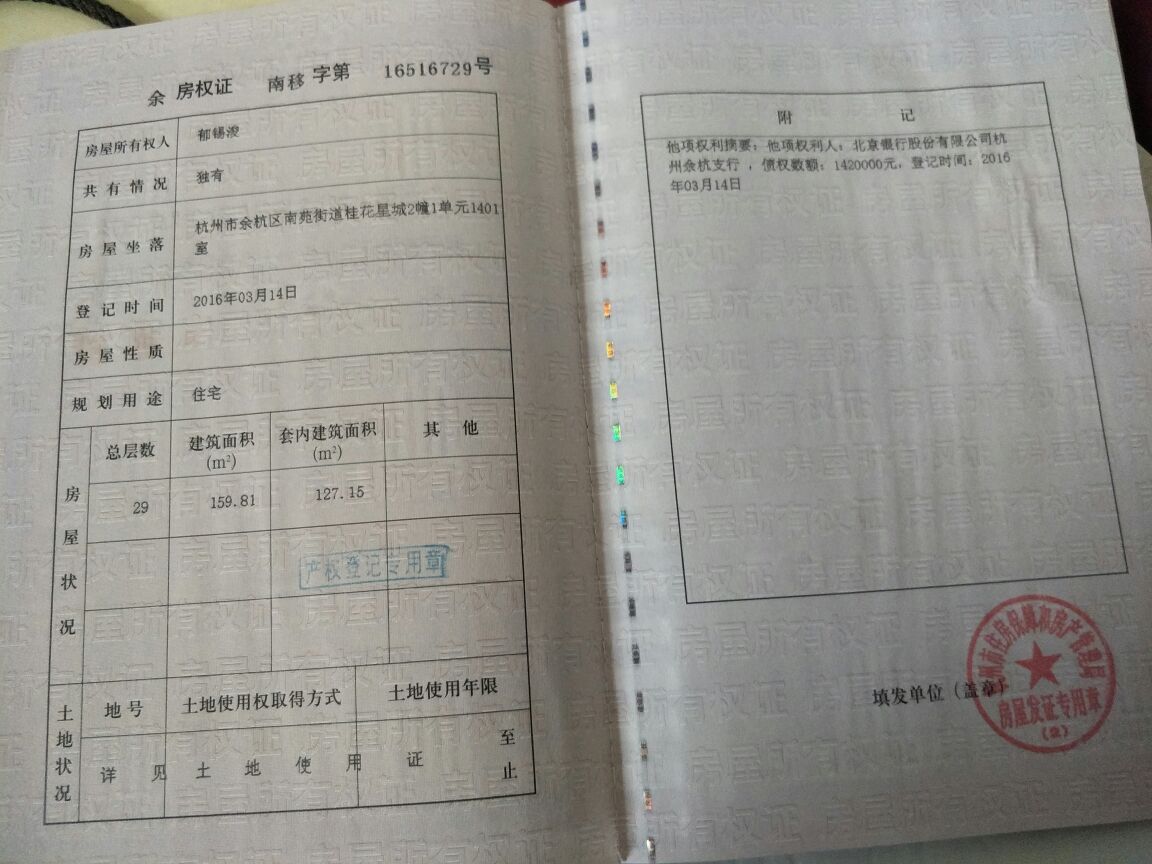 余 房权证 南移 字第 16516729号
房屋所有权人 郁锡浚
共有情况 独有
房屋坐落 杭州市余杭区南苑街道桂花星城2幢1单元1401
室
登记时间 2016年03月14日
房屋性质
规划用途 住宅
房屋状况
总层数 建筑面积(m²) 套内建筑面积(m²) 其他
29 159.81 127.15
产权登记专用章
土地状况
地号 土地使用权取得方式 土地使用年限
详见土地使用证 至
止
附记
他项权利摘要：他项权利人：北京银行股份有限公司杭
州余杭支行，债权数额：1420000元，登记时间：2016
年03月14日
填发单位（盖章）
州市住房保障和房产管理局
房屋发证专用章
(2)